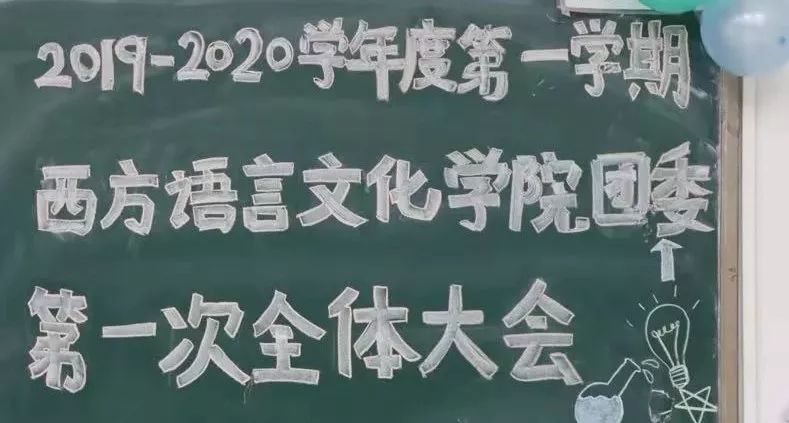 2019-2020学年度第一学期
西方语言文化学院团委
第一次全体大会